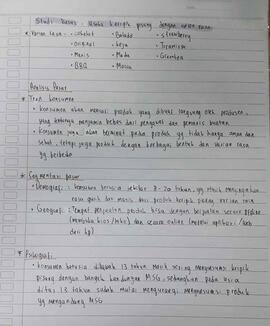 Studi kasus : Usaha keripik pisang dengan varian rasa
* Varian rasa : • Cokelat • Balado • Strawberry
• Original • Keju • Tiramisu
• Manis • Madu
• BBQ • Mocca
Analisis Pasar
* Tren konsumen
• Konsumen akan mencari produk yang dibuat langsung oleh produsen,
yang biasanya menjamin bebas dari pengawet dan pemanis buatan
• Konsumen yang akan berminat pada produk yg tidak hanya aman dan
sehat, tetapi juga produk dengan berbagai bentuk dan varian rasa
yg berbeda
* Segmentasi pasar
• Demografi : konsumen berusia sekitar
rasa gurih dan manis dari produk keripik pisang varian rasa
• Geografi : Tempat penjualan produk bisa dengan berjualan secara offline
(membuka kios/toko) dan secara online (melalui aplikasi
* Psikografi :
• Konsumen berusia dibawah 13 tahun masih sering mengonsumsi keripik
pisang dengan banyak kandungan MSG, sedangkan pada usia
diatas 13 tahun sudah mulai mengurangi mengonsumsi produk
yg mengandung MSG